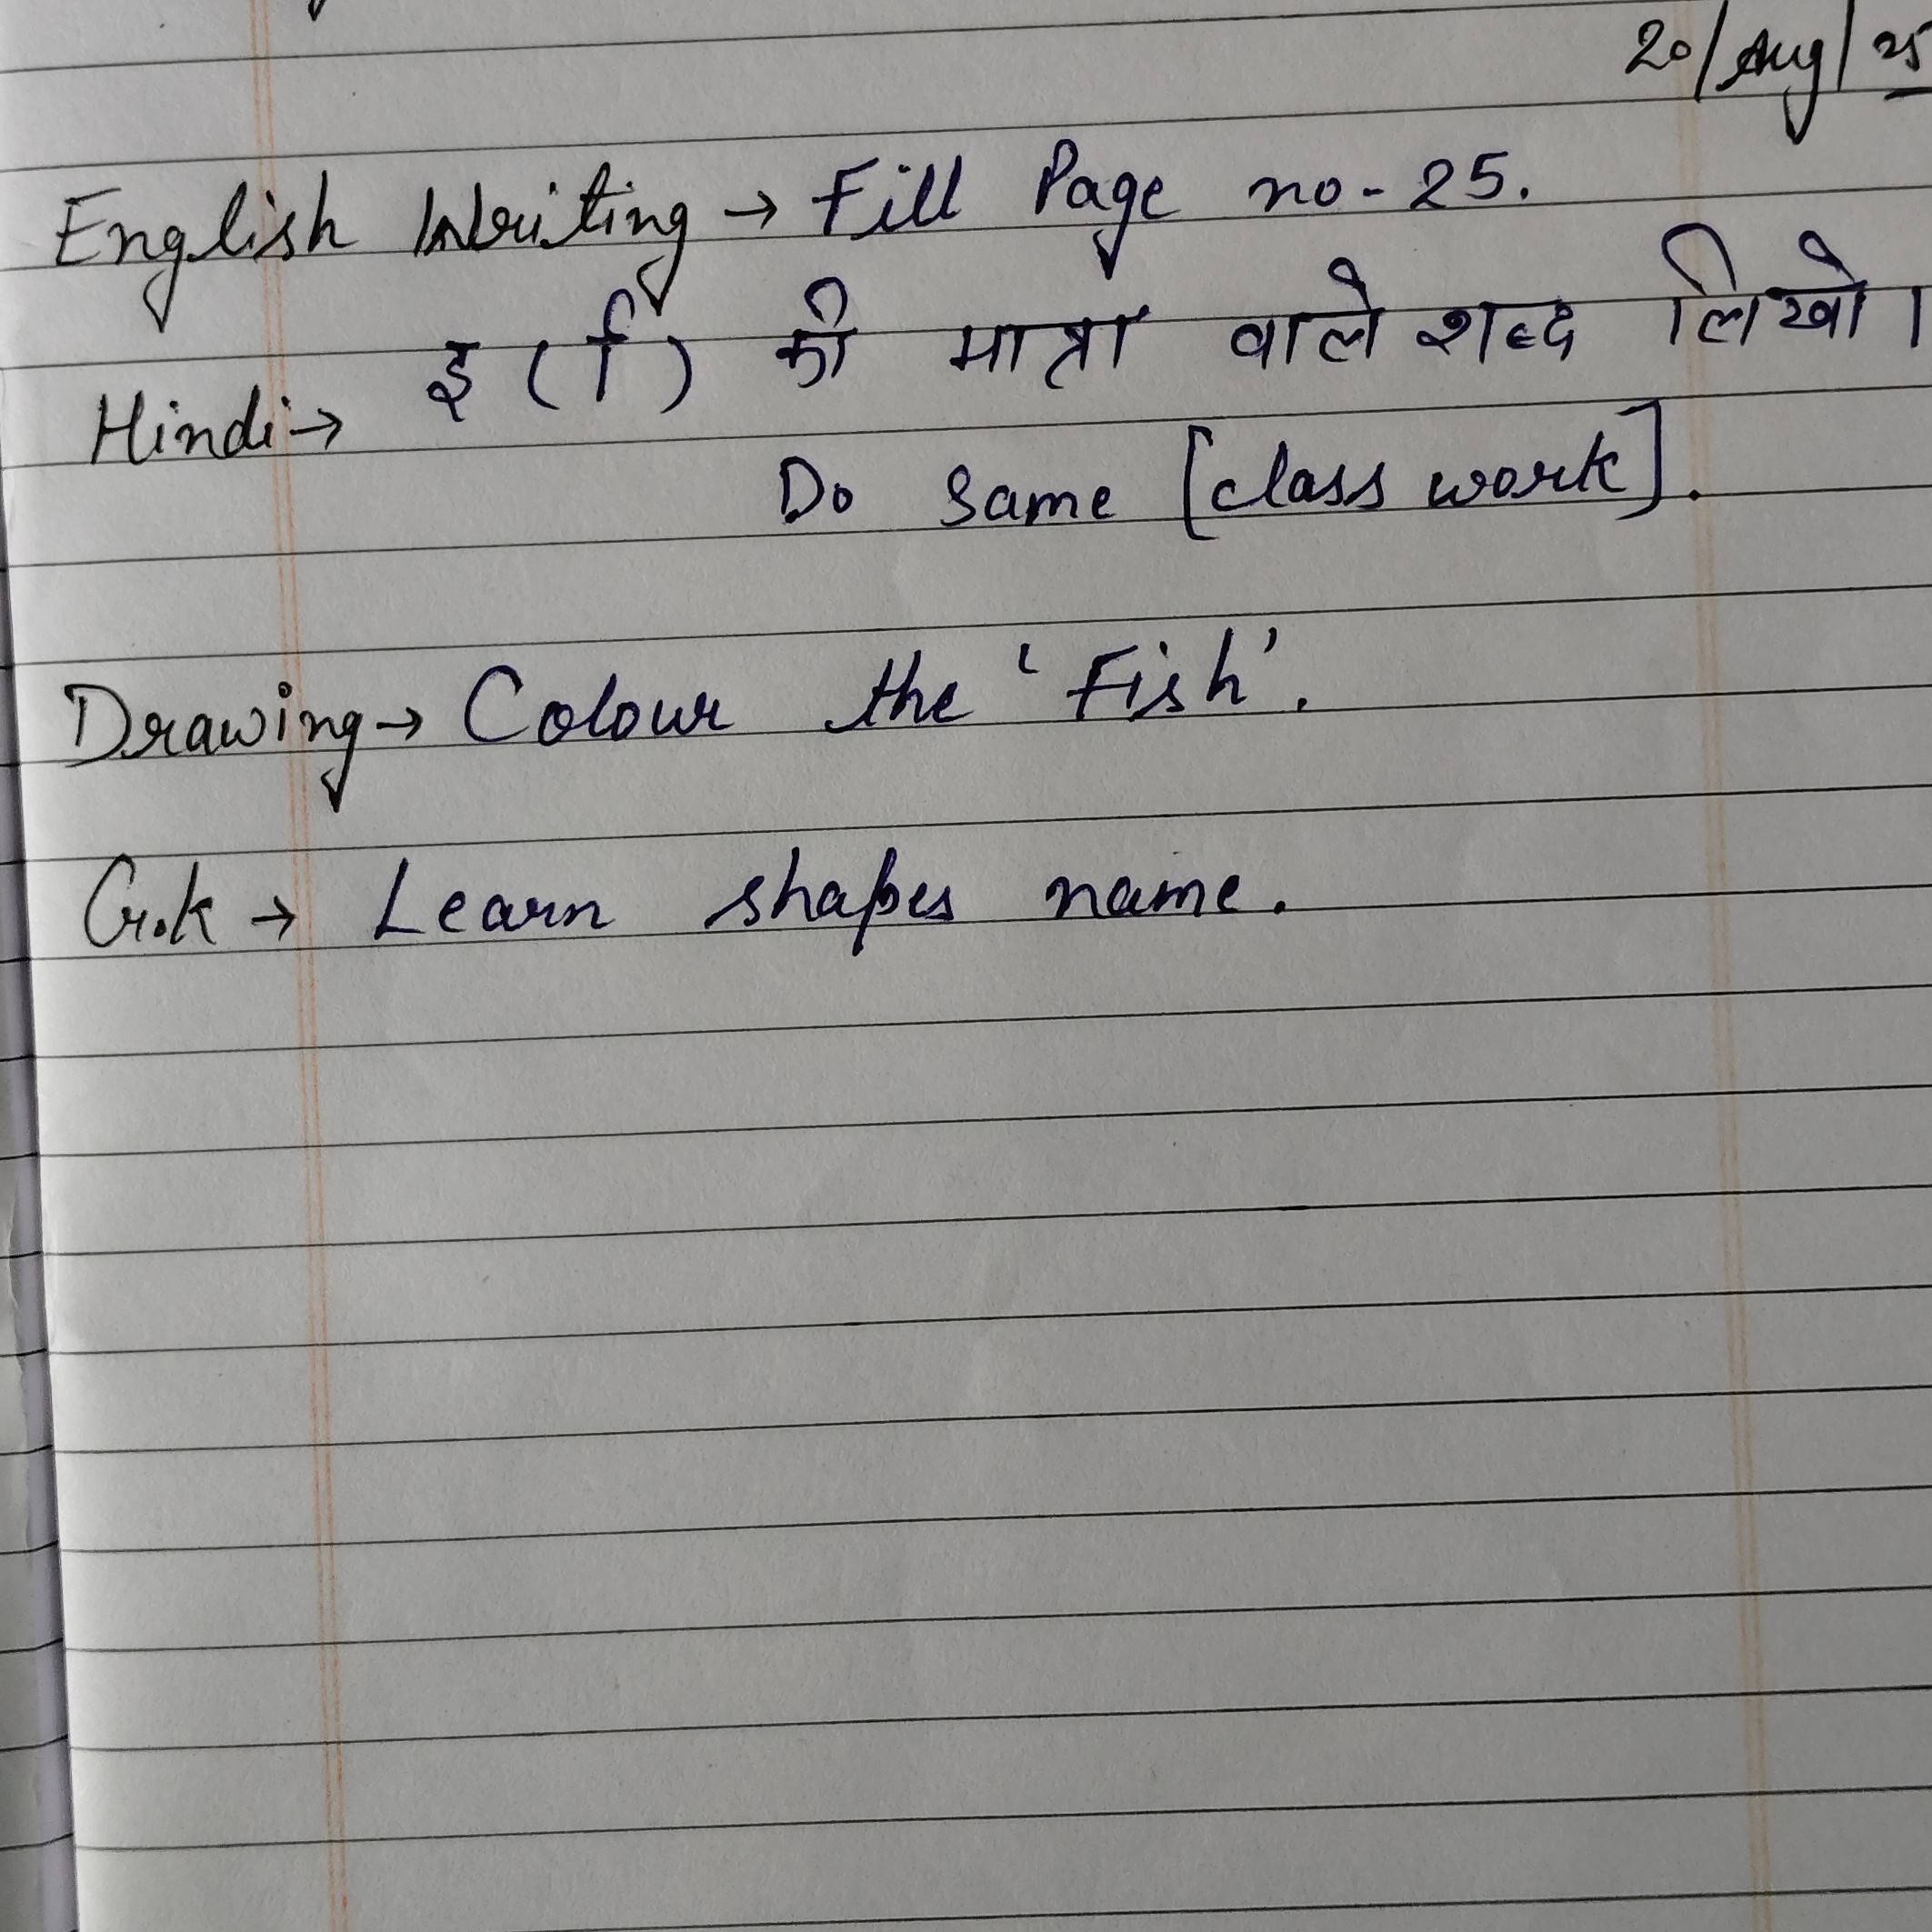 20/Aug/25
English Writing → Fill Page no - 25.
Hindi → इ ( ि ) की मात्रा वाले शब्द लिखो।
Do same [class work].
Drawing → Colour the 'Fish'.
G.k → Learn shapes name.